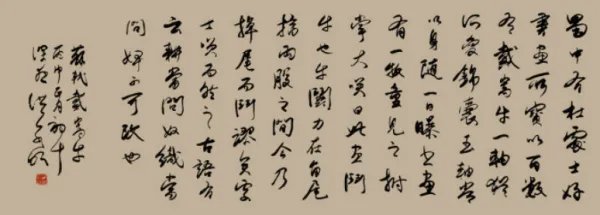 蜀中有杜處士好
書畫所寶以百數
有戴嵩牛一軸
所愛錦囊玉軸常
以自隨一日曝書畫
有一牧童見之拊
掌大笑曰此畫鬥
牛也牛鬭力在角尾
搐兩股之間今乃
掉尾而鬥謬矣處
士笑而然之古語有
云耕當問奴織當
問婢不可改也
蘇軾戴嵩牛
丙申月初十